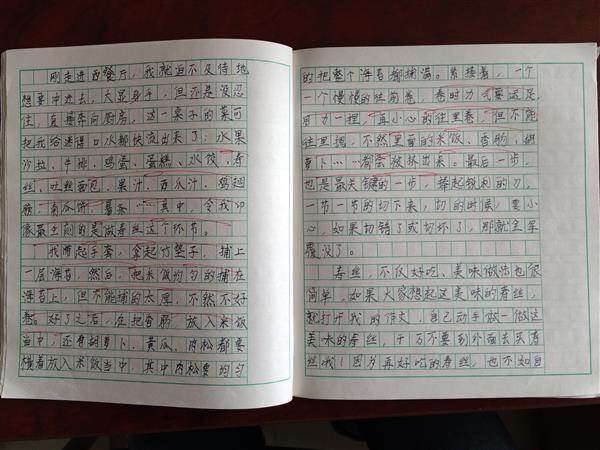 刚走进西餐厅，我就迫不及待地
想要冲进去，大显身手，但还是没忍
住，直接奔向厨房，这一桌子的菜可
把我给迷得口水都快流出来了：水果
沙拉、牛排、鸡蛋、蛋糕、水饺、寿
丝、吐丝面包、果汁、西瓜汁、鸡翅
膀、南瓜饼、薯条……其中，令我印
象最深刻的是做寿丝这个环节。
我带起手套，拿起竹垫子，捕上
一层海苔，然后，把米饭均匀的捕在
海苔上，但不能捕的太厚，不然不好
卷。好了之后，在把香肠，放入米饭
当中，还有胡萝卜、黄瓜、肉松都要
横着放入米饭当中，其中肉松要均匀
的把整个海苔都捕满。紧接着，一个
一个慢慢的往前卷，卷时力气要适足，
用力一捏，再小心的往里卷，但不能
往里捏，不然里面的米饭、香肠、胡
萝卜……都会被挤出来。最后一步，
也是最关键的一步，举起锐利的刀，
一节一节的切下来，切的时候，要小
心，如果切错了或切坏了，那就全军
覆没了。
寿丝，不仅好吃、美味做法也很
简单，如果大家想起这美味的寿丝，
就打开我的作文，自己动手做一做这
美味的寿丝，千万不要到外面去买寿
丝哦！因为再好吃的寿丝，也不如自